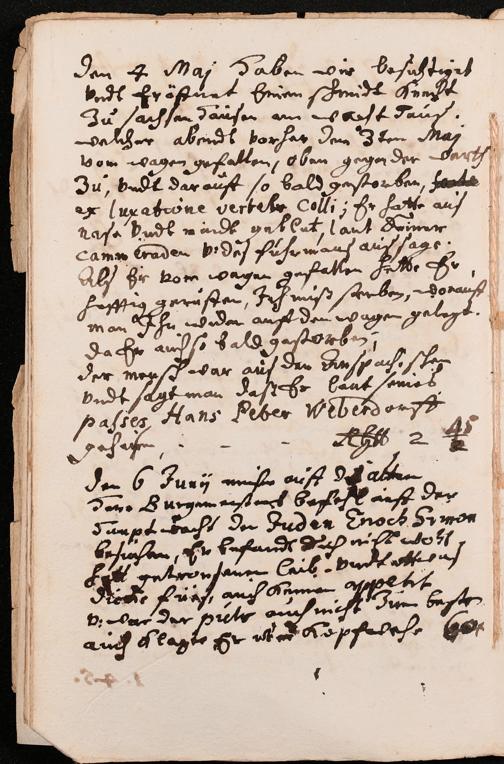 den 4 Maj haben wir besichtiget
undt Eröffnet Einen schmidt Knecht
Zu sachsen hausen am wacht haus.
welcher abendts vorher den 3ten Maj
vom wagen gefallen, oben gegen der warth
Zu, undt darauff so bald gestorben,
ex luxatione vertebr Colli; Er hatte aus
nase undt mundt geblut, laut seiner
Cammeraden v. des fuhrmans aussage.
Als Er vom wagen gefallen hette Er
hefftig geruffen, Ich muss sterben, worauff
man Ihn wieder auff den wagen gelegt.
da Er auch so bald gestorben;
der mensch war aus dem Anspachischen
undt sagt man dass Er laut seines
passes, Hans Peter Weberdorff
geheisen, - - - Rthlr 2 45
den 6 Junij muste auff des alten
herr Burgemeisters befehl auff der
haupt wacht den Juden Enoch Simon
besuchen, Er befandt sich nicht wohl
hatt geschwollenen leib, undt etwas
dicke füss, auch keinen appetit
v. war der puls auch nicht Zum besten
auch klagte Er über Kopfwehe